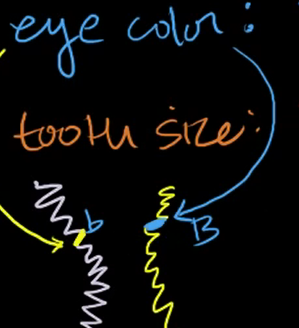 eye color:
tooth size:
b
B